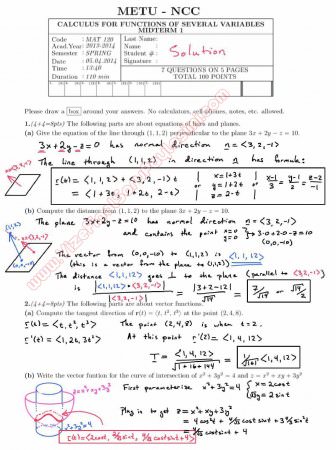 METU - NCC
CALCULUS FOR FUNCTIONS OF SEVERAL VARIABLES
MIDTERM 1
Code : MAT 120
Acad.Year: 2013-2014
Semester : SPRING
Date : 05.04.2014
Time : 13:40
Duration : 110 min
Last Name:
Name :
Student # :
Signature :
Solution
7 QUESTIONS ON 5 PAGES
TOTAL 100 POINTS
Please draw a box around your answers. No calculators, cell-phones, notes, etc. allowed.
1.(4+4=8pts) The following parts are about equations of lines and planes.
(a) Give an equation of the line through (1,1,2) perpendicular to the plane 3x + 2y − z = 10.
3x+2y-z=0 has normal direction n = <3,2,-1>
The line through (1,1,2) in direction n has formula:
r(t) = <1,1,2> + <3,2,-1>t
= <1+3t, 1+2t, 2-t>
or
x = 1+3t
y = 1+2t
z = 2-t
or
x-1/3 = y-1/2 = z-2/-1
(b) Compute the distance from (1,1,2) to the plane 3x + 2y − z = 10.
The plane 3x+2y-z=10 has normal direction n = <3,2,-1>
and contains the point x=0 y=0 } 3·0+2·0-z=10
(0,0,-10)
The vector from (0,0,-10) to (1,1,2) is <1,1,12>
(this is a vector from the plane to (1,1,2))
The distance <1,1,12> goes ⊥ to the plane (parallel to <3,2,-1>)
is |<1,1,12>•<3,2,-1>| / |<3,2,-1>| = |3+2-12| / √14 = 7/√14 or √14/2
2.(4+4=8pts) The following parts are about vector functions.
(a) Compute the tangent direction of r(t) = ⟨t, t², t³⟩ at the point (2,4,8).
r(t) = <t, t², t³>
The point (2,4,8) is when t=2.
r'(t) = <1, 2t, 3t²>
At this point r'(2) = <1,4,12>
T = <1,4,12> / √1+16+144 = 1/√161 <1,4,12>
(b) Write the vector funtion for the curve of intersection of x² + 3y² = 4 and z = x² + xy + 3y²
First parameterize x²+3y²=4 { x=2cost
√3y=2sint
z=x²+xy+3y²
Plug in to get z = x²+xy+3y²
x²+3y²=4
= 4/√3 costsint + 4
r(t)=<2cost, 2/√3 sint, 4/√3 costsint+4>